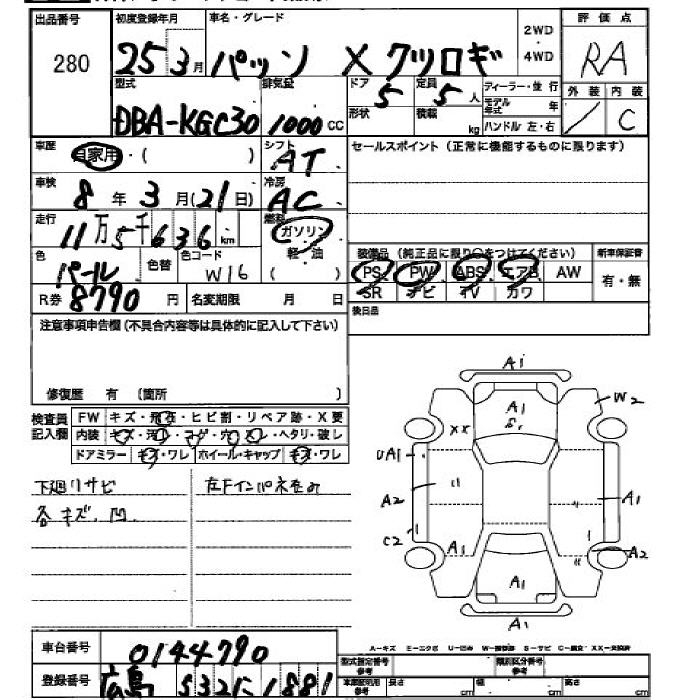 出品番号 初度登録年月 車名・グレード 2WD・4WD 評価点
280 25 3月 パッソ X クツロギ RA
型式 排気量 ドア 定員 ディーラー・並行 外装 内装
DBA-KGC30 1000cc 5 5人 モデル年式 年 / C
形状 積載 kg ハンドル 左・右
車歴 自家用・( ) シフト AT セールスポイント (正常に機能するものに限ります)
車検 8年 3月(21日) 冷房 AC
走行 11万5千636km 燃料 ガソリン 軽・油 ( )
色 パール 色替 色コード W16 装備品 (純正品に限り○をつけてください) 新車保証書
PS PW ABS エアB AW 有・無
R券 8790円 名変期限 月 日 SR ナビ TV カワ
注意事項申告欄(不具合内容等は具体的に記入して下さい) 後日品
修復歴 有 (箇所 )
検査員記入欄 FW キズ・飛石・ヒビ割・リペア跡・X要
内装 キズ・汚レ・コゲ・穴・スレ・ヘタリ・破し
ドアミラー キズ・ワレ ホイール・キャップ キズ・ワレ
下廻りサビ 左Fインパネ歪み
各キズ、凹
A1
W2
A1
XX
UA1
A2 A1
C2
A1 A2
A1
A1
A-キズ E-エクボ U-凹み W-補修跡 S-サビ C-腐食 XX-交換済
車台番号 0144790
型式指定番号 参考 類別区分番号 参考
登録番号 広島 532 に 1881
車庫証明用 参考 長さ cm 幅 cm 高さ cm